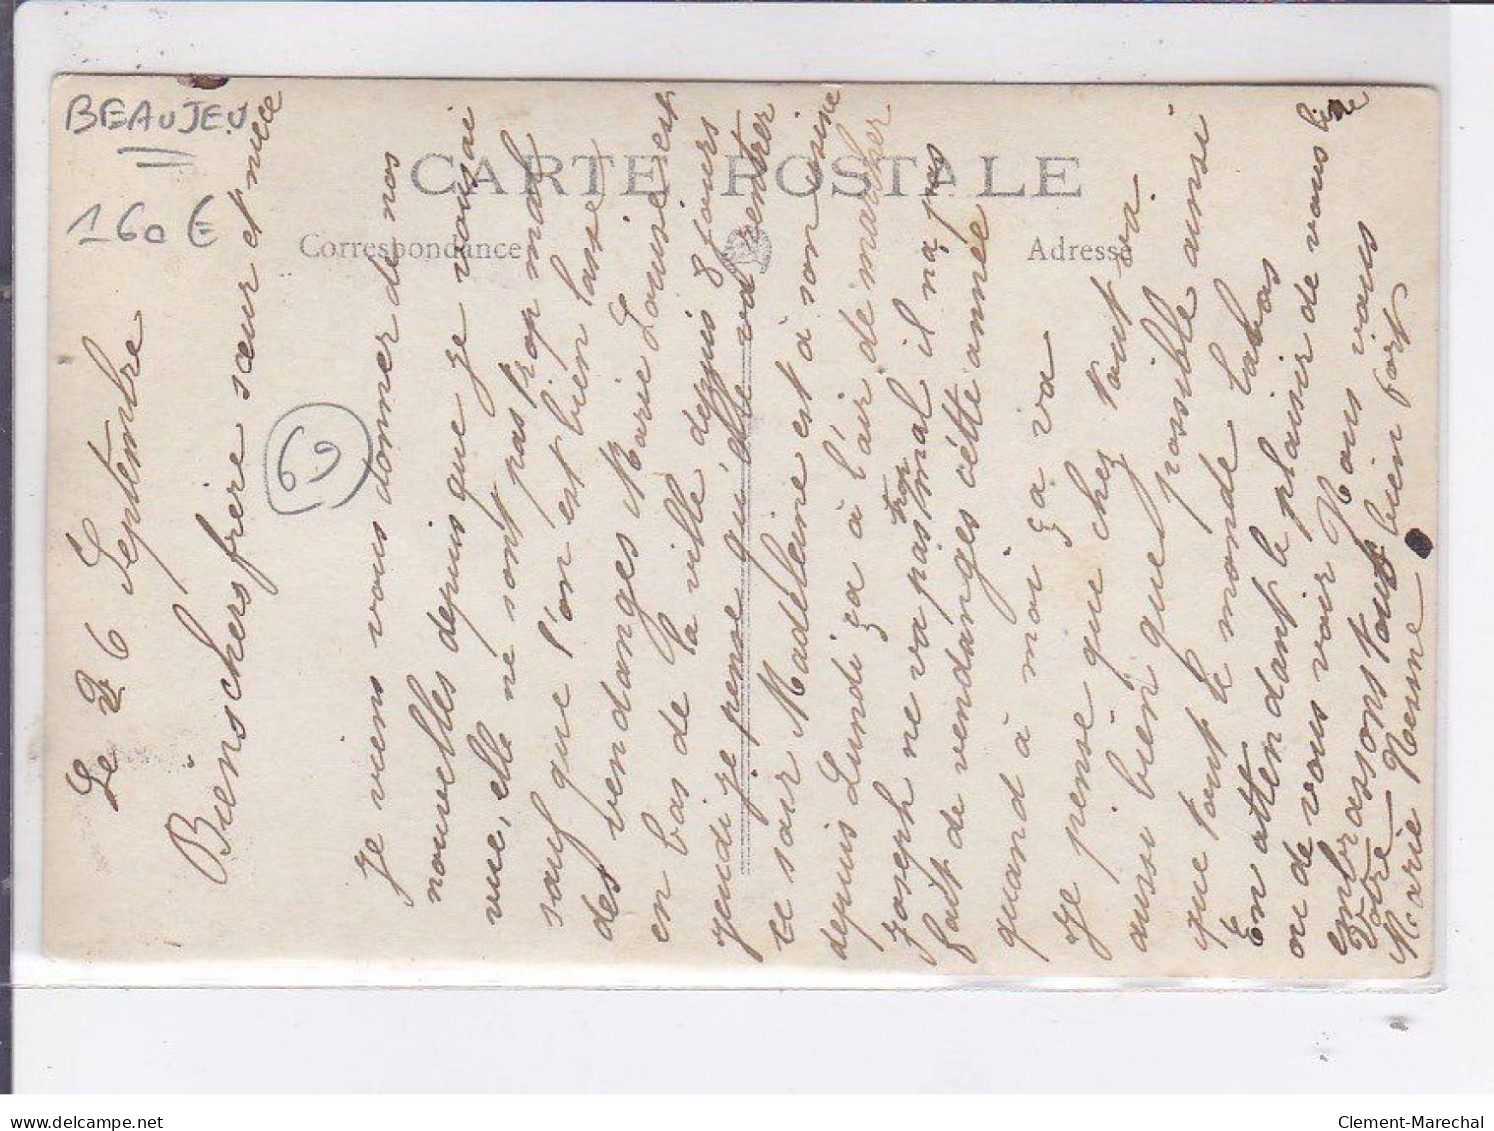 BEAUJEU
160 €
CARTE POSTALE
Correspondance
Adresse
60
Le 26 Septembre
Biens chers frère sœur et nièce
Je viens vous donner de nos
nouvelles depuis que je vous ai
vue, elle ne sont pas trop mal
sauf que l'on est bien lassé
des vendanges Marie Louise est
en bas de la ville depuis 8 jours
jeudi je pense qu'elle va rentrer
ce soir Madeleine est à son usine
depuis Lundi ça à l'air de marcher
Joseph ne va pas trop mal il n'a pas
fait de vendanges cétte année
quand à moi ça va
Je pense que chez tout va
aussi bien que possible ainsi
que tout le monde labas
En attendant le plaisir de vous lire
ou de vous voir Nous vous
embrassons tous bien fort
Votre
Marie Nesme
www.delcampe.net
Clement-Marechal